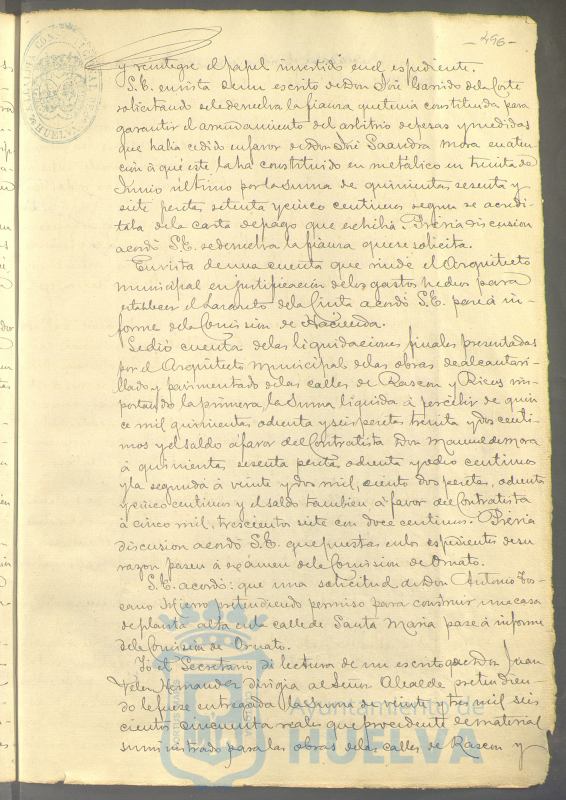 -496-
y reintegre el papel invertido en el expediente.
S.E. en vista de un escrito de Don José Garrido de la Corte
solicitando se le devuelva la fianza que tenia constituida para
garantir el arrendamiento del arbitrio de pesas y medidas
que habia cedido en favor de Don José Saavedra Mora en aten-
cion á que este la ha constituido en metálico en treinta de
Junio último por la suma de quinientas sesenta y
siete pesetas setenta y cinco centimos segun se acredi-
taba de la carta de pago que exhibia. Prévia discusion
acordó S.E. se devuelva la fianza que se solicita.
En vista de una cuenta que rinde el Arquitecto
municipal en justificacion de los gastos hechos para
establecer el Lazareto de la Cinta acordó S.E. pase á in-
forme de la Comision de Hacienda.
Se dió cuenta de las liquidaciones finales presentadas
por el Arquitecto municipal de las obras de alcantari-
llado y pavimentado de las calles de Rascon y Ricos im-
portando la primera la suma líquida á percibir de quin-
ce mil quinientas ochenta y seis pesetas treinta y dos centi-
mos y el saldo á favor del Contratista Don Manuel de Mora
á quinientas sesenta pesetas ochenta y ocho centimos
y la segunda á veinte y dos mil, ciento dos pesetas, ochenta
y cinco centimos y el saldo tambien á favor del Contratista
á cinco mil, trescientos siete con doce centimos. Prévia
discusion acordó S.E. que puestas en los expedientes de su
razon pasen á exámen de la Comision de Ornato.
S.E. acordó: que una solicitud de Don Antonio Tos-
cano Hierro pretendiendo permiso para construir una casa
de planta alta en la calle de Santa Maria pase á informe
de la Comision de Ornato.
Yó el Secretario dí lectura de un escrito que Don Juan
Velez Hernandez dirigia al Señor Alcalde pretendien-
do le fuese entregada la suma de veinte y tres mil seis
cientos cincuenta reales que procedente de material
suministrado para las obras de las calles de Rascon y
Ayuntamiento de
HUELVA